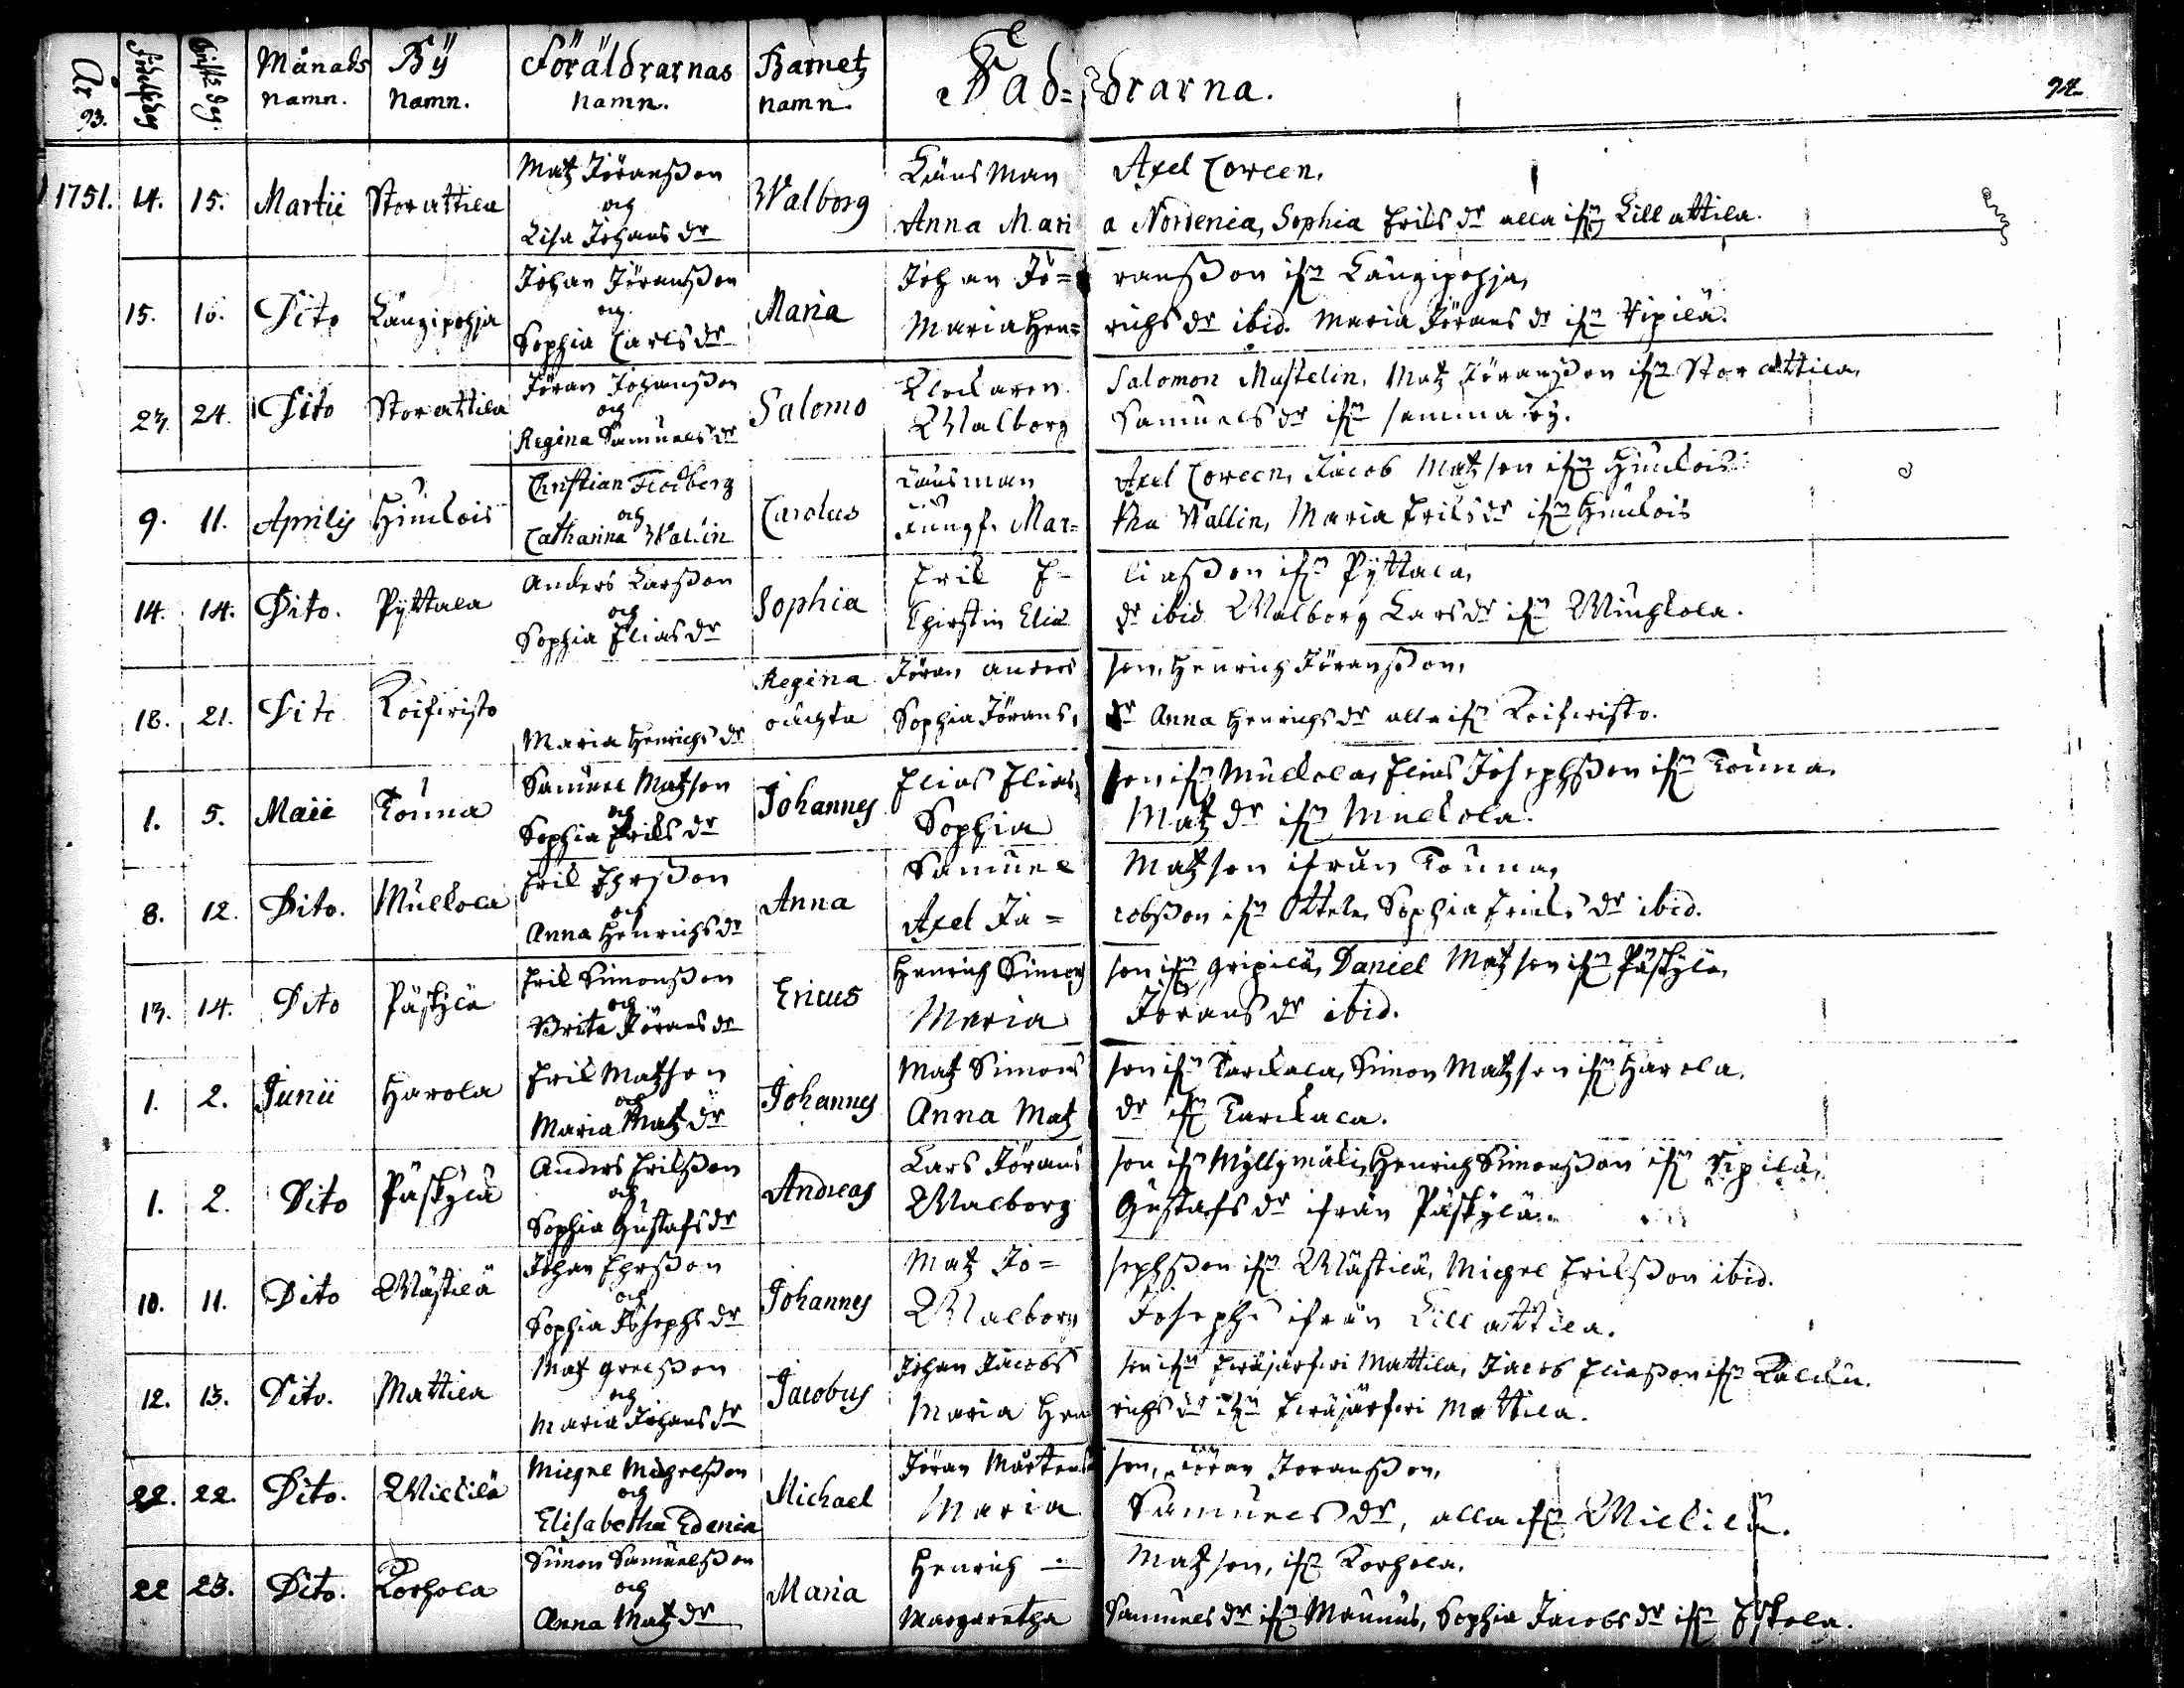 År Födelsedag Christn: dag. Månads namn. Bÿ Namn. Föräldrarnas namn. Barnetz namn. Fad=drarna.
93. 94.
1751. 14. 15. Martii Storattila Matz Jöransson och Lisa Johans dr Walborg
Länsman Axel Coreen,
Anna Maria Nordenia, Sophia Erils dr alla ifrn Lillattila.
15. 16. Dito Längipohja Johan Jöransson och Sophia Carls dr Maria
Johan Jö=ransson ifrn Längipohja,
Maria Hen=richs dr ibid. Maria Jörans dr ifrn Sipilä.
23. 24. Dito Storattila Jöran Johansson och Regina Samuels dr Salomo
Klockaren Salomon Mustelin, Matz Jöransson ifrn Storattila,
Walborg Samuels dr ifrn samma by.
9. 11. Aprilis Christian Flodberg och Catharina Wallin Carolus
Länsman Axel Coreen, Jacob Matzson ifrn
Jungf. Mar=tha Wallin, Maria Eriks dr ifrn
14. 14. Dito. Pÿttala Anders Larsson och Sophia Elias dr Sophia
Erik E=liasson ifrn Pÿttala,
Chirstin Elias dr ibid Walborg Lars dr ifrn
18. 21. Dito Koifiristo Maria Henrichs dr Regina oächta
Jöran Andersson, Henrich Jöransson,
Sophia Jörans dr Anna Henrichs dr alla ifrn Koifiristo.
1. 5. Maii Touna Samuel Matzson och Sophia Eriks dr Johannes
Elias Eliasson ifrn Mullola, Elias Josephsson ifrn Touna.
Sophia Matz dr ifrn Mullola.
8. 12. Dito. Mullola Erik Ehrsson och Anna Henrichs dr Anna
Samuel Matzson ifrån Touna,
Axel Ja=cobsson ifrn Ottela, Sophia Eriks dr ibid.
13. 14. Dito Päskÿlä Erik Simonsson och Brita Jörans dr Ericus
Henrich Simonsson ifrn Gripilä, Daniel Matzson ifrn Päskÿlä,
Maria Jörans dr ibid.
1. 2. Junii Harola Erik Matzson och Maria Matz dr Johannes
Matz Simonsson ifrn Tarckala, Simon Matzson ifrn Harola.
Anna Matz dr ifrn Tarckala.
1. 2. Dito Päskÿlä Anders Eriksson och Sophia Gustafs dr Andreas
Lars Jöransson ifrn Mÿllÿmäki, Henrich Simonsson ifrn Sipilä,
Walborg Gustafs dr ifrån Päskÿlä.
10. 11. Dito Wästilä Johan Ehrsson och Sophia Josephs dr Johannes
Matz Jo=sephsson ifrn Wästilä, Michel Eriksson ibid.
Walborg Josephs ifrån Lillattila.
12. 13. Dito. Mattila Matz Grelsson och Maria Johans dr Jacobus
Johan Jacobsson ifrn Eräjärfwi Mattila, Jacob Eliasson ifrn
Maria Henrichs dr ifrn Eräjärfwi Mattila.
22. 22. Dito. Wickilä Michel Michelsson och Elisabetha Edenia Michael
Jöran Mårtensson, Jöran Jöransson,
Maria Samuels dr, alla ifrn Wickilä.
22 23. Dito. Korhola Simon Samuelsson och Anna Matz dr Maria
Henrich Matzson, ifrn Korhola.
Margaretha Samuels dr ifrn Maunus, Sophia Jacobs dr ifrn Eskola.